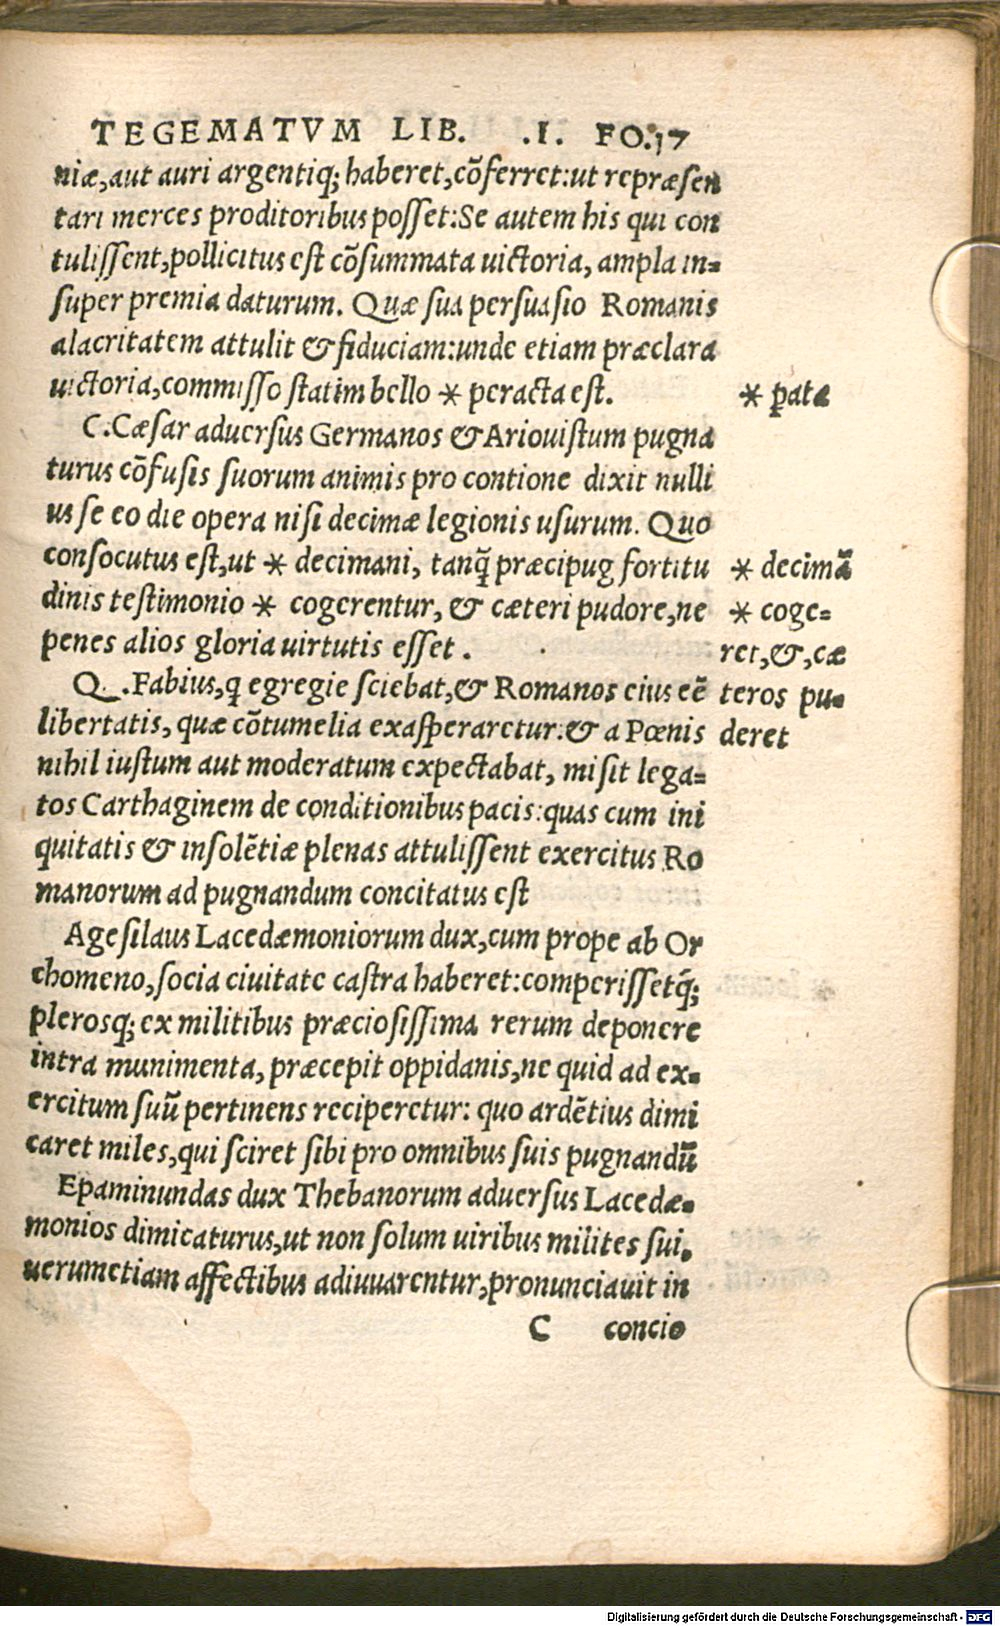 TEGEMATVM LIB. .I. FO.17
niæ,aut auri argentiq; haberet,cõferret:ut repræsen
tari merces proditoribus posset:Se autem his qui con
tulissent,pollicitus est cõsummata uictoria, ampla in-
super premia daturum. Quæ sua persuasio Romanis
alacritatem attulit & fiduciam:unde etiam præclara
uictoria,commisso statim bello * peracta est.
* ꝑata
C.Cæsar aduersus Germanos & Ariouistum pugna
turus cõfusis suorum animis pro contione dixit nulli
us se eo die opera nisi decimæ legionis usurum. Quo
consocutus est,ut * decimani, tanq̃ præcipug fortitu
dinis testimonio * cogerentur, & cæteri pudore,ne
penes alios gloria uirtutis esset.
* decimã
* coge-
ret,&,cæ
teros pu-
deret
Q.Fabius,q egregie sciebat,& Romanos eius eẽ
libertatis, quæ cõtumelia exasperaretur:& a Pœnis
nihil iustum aut moderatum expectabat, misit lega-
tos Carthaginem de conditionibus pacis:quas cum ini
quitatis & insolẽtiæ plenas attulissent exercitus Ro
manorum ad pugnandum concitatus est
Agesilaus Lacedæmoniorum dux,cum prope ab Or
chomeno,socia ciuitate castra haberet:comperissetq̃;
plerosq; ex militibus præciosissima rerum deponere
intra munimenta, præcepit oppidanis,ne quid ad ex-
ercitum suũ pertinens reciperetur: quo ardẽtius dimi
caret miles,qui sciret sibi pro omnibus suis pugnandũ
Epaminundas dux Thebanorum aduersus Lacedæ-
monios dimicaturus,ut non solum uiribus milites sui.
uerumetiam affectibus adiuuarentur,pronunciauit in
C concio
Digitalisierung gefördert durch die Deutsche Forschungsgemeinschaft - DFG